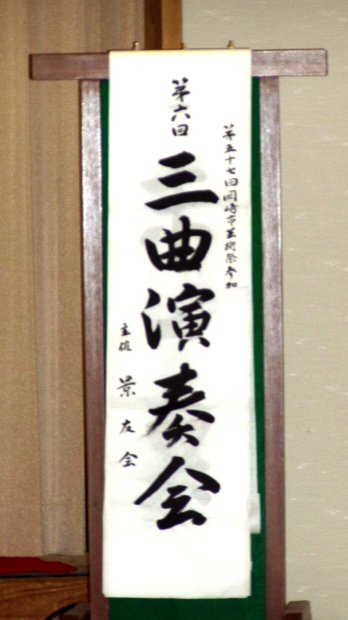 第五十七回岡崎市芸術祭参加
第六回
三曲演奏会
主催 景友会